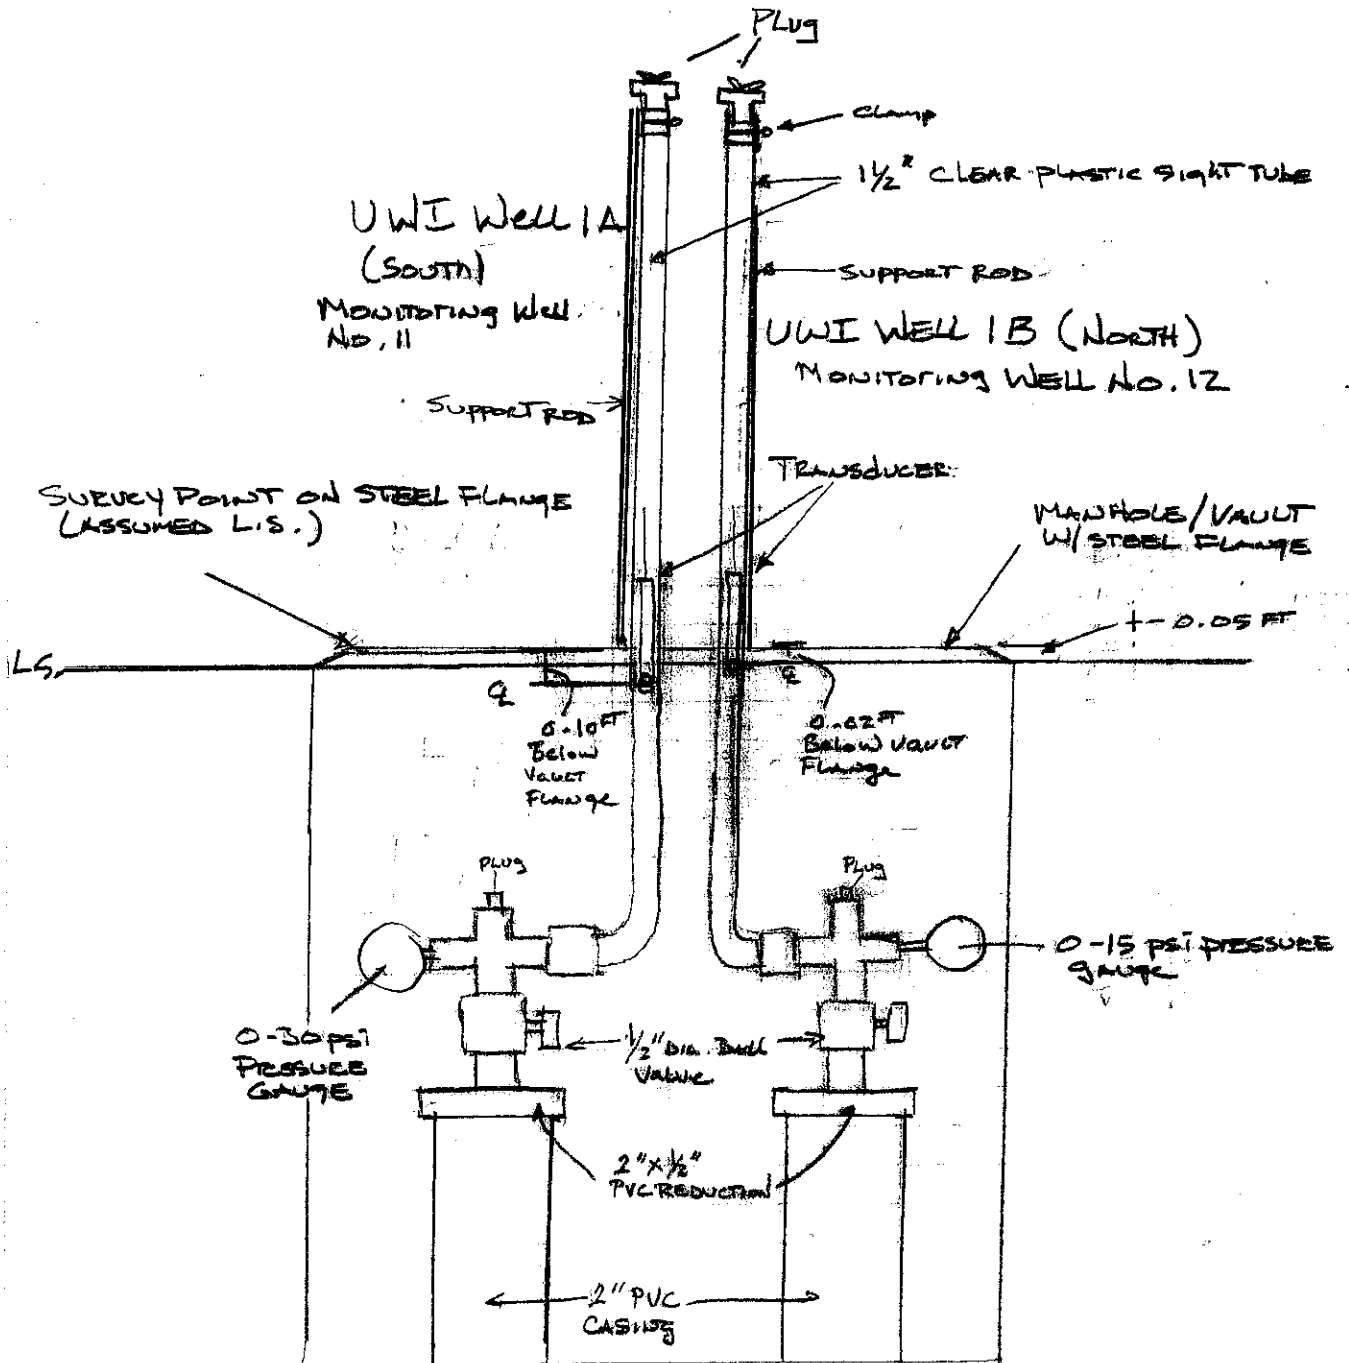 PLug
Clamp
1½" CLEAR PLASTIC SIGHT TUBE
UWI Well 1A
(SOUTH)
MONITORING Well
NO. 11
SUPPORT ROD
UWI WELL 1B (NORTH)
MONITORING WELL NO. 12
SUPPORT ROD
TRANSDUCER
SURVEY POINT ON STEEL FLANGE
(ASSUMED L.S.)
MANHOLE/VAULT
W/ STEEL FLANGE
+- 0.05 FT
L.S.
℄
℄
0.10 FT
Below
VAULT
FLANGE
0.02 FT
BELOW VAULT
FLANGE
PLUG
PLUG
0-15 psi PRESSURE
GAUGE
0-30 psi
PRESSURE
GAUGE
½" DIA. BALL
VALVE
2" x ½"
PVC REDUCTION
2" PVC
CASING